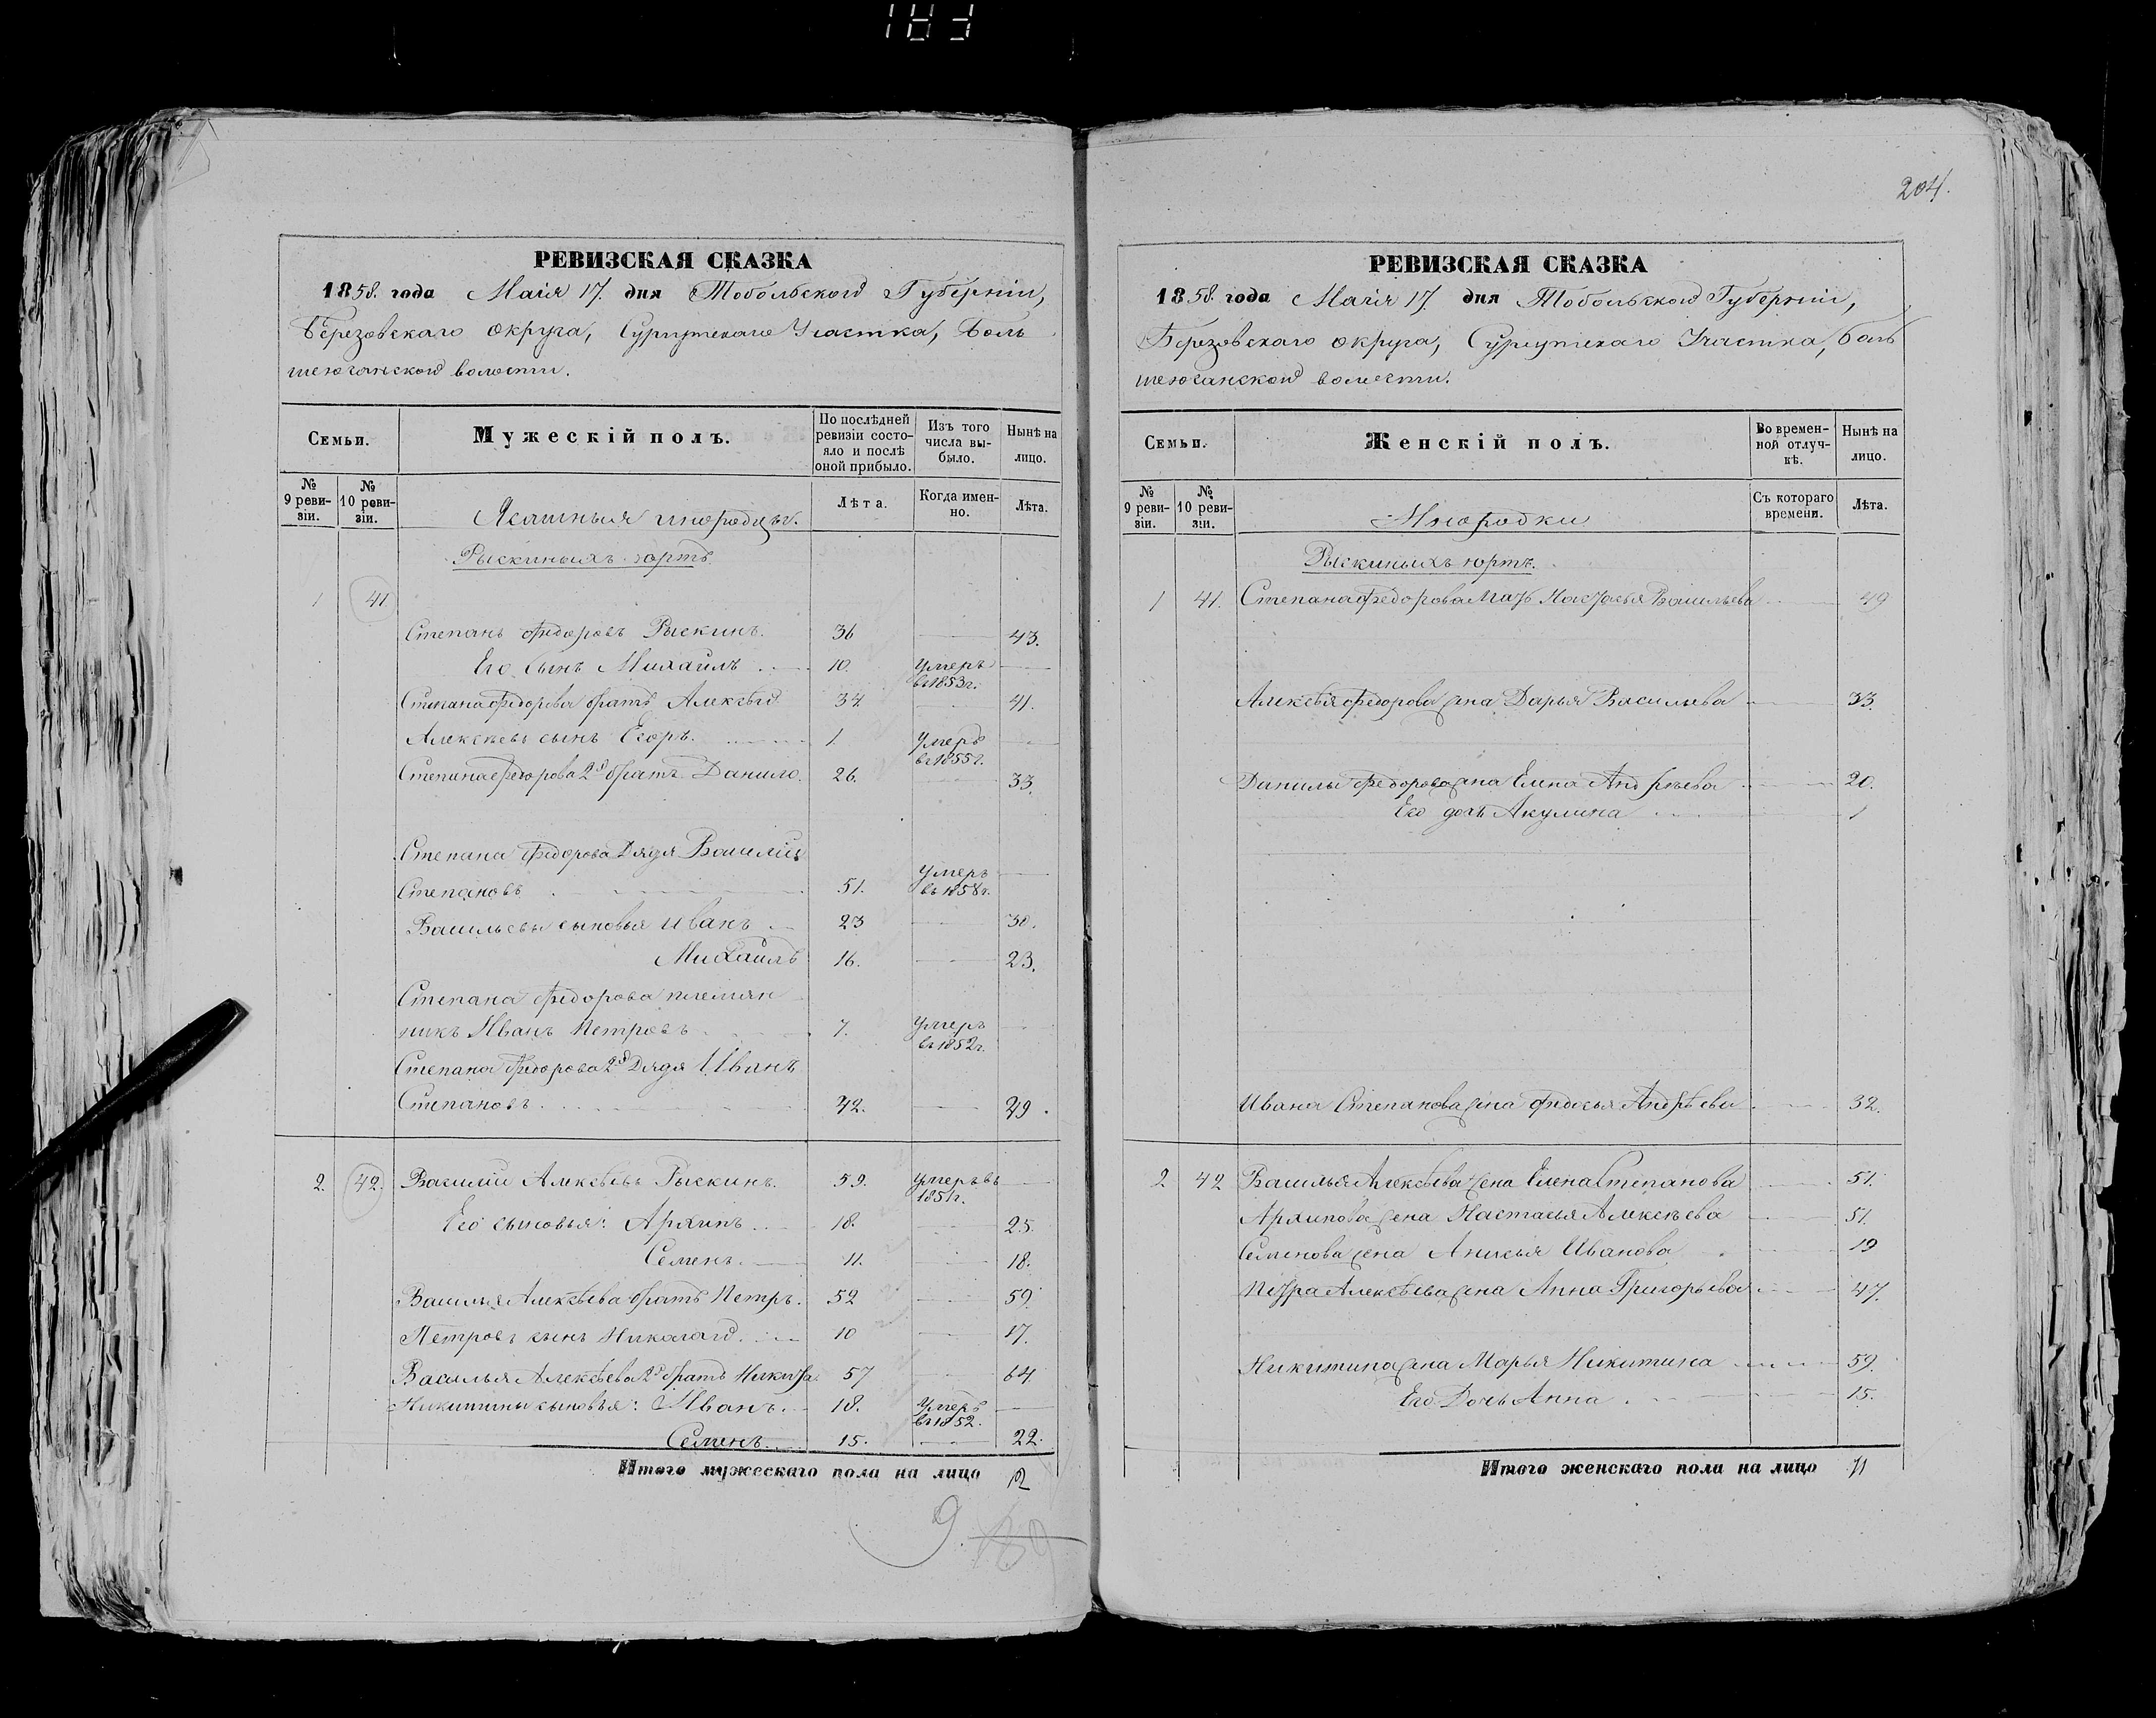 183
РЕВИЗСКАЯ СКАЗКА
1858. года Маія 17. дня Тобольской Губерніи,
Березовскаго округа, Сургутскаго Участка, Боль
шеюганской волости.
Семьи.
Мужескій полъ.
По послѣдней ревизіи состояло и послѣ оной прибыло.
Изъ того числа выбыло.
Нынѣ на лицо.
№ 9 ревизіи.
№ 10 ревизіи.
Ясашныя инородцы.
Лѣта.
Когда именно.
Лѣта.
Рыскиныхъ юртъ
1 41
Степанъ Федоровъ Рыскинъ. 36 43.
Его сынъ Михайлъ 10. Умеръ въ 1853г.
Степана Федорова братъ Алексѣй 34 41.
Алексѣевъ сынъ Егоръ. 1. Умеръ въ 1855г.
Степана Федорова 2й братъ Данило. 26. 33.
Степана Федорова Дядя Василій
Степановъ 51. Умеръ въ 1858г.
Васильевы сыновья Иванъ 23 30.
Михайлъ 16. 23.
Степана Федорова племян
никъ Иванъ Петровъ 7. Умеръ въ 1852г.
Степана Федорова 2й Дядя Иванъ
Степановъ. 42. 49.
2. 42. Василій Алексѣевъ Рыскинъ. 59. Умеръ въ 1851г.
Его сыновья: Архипъ 18. 25.
Семенъ. 11. 18.
Василья Алексѣева братъ Петръ. 52 59.
Петровъ сынъ Николай. 10 17.
Василья Алексѣева 2й братъ Никита. 57 64.
Никитины сыновья: Иванъ. 18. Умеръ въ 1852.
Семенъ. 15. 22.
Итого мужескаго пола на лицо 12
9
204.
РЕВИЗСКАЯ СКАЗКА
1858. года Маія 17. дня Тобольской Губерніи,
Березовскаго округа, Сургутскаго Участка, боль
шеюганской волости.
Семьи.
Женскій полъ.
Во временной отлучкѣ.
Нынѣ на лицо.
№ 9 ревизіи.
№ 10 ревизіи.
Инородки
Съ котораго времени.
Лѣта.
Рыскиныхъ юртъ.
1 41. Степана Федорова мать Настасья Васильева 49
Алексѣя Федорова жена Дарья Васильева 33.
Данилы Федорова жена Елена Андрѣева 20.
Его дочь Акулина 1
Ивана Степанова жена Федосья Андрѣева 32.
2 42 Василья Алексѣева жена Елена Степанова 51.
Архипова жена Настасья Алексѣева 51.
Семенова жена Анисья Иванова 19
Петра Алексѣева жена Анна Григорьева 47.
Никитина жена Марья Никитина 59.
Его Дочь Анна 15.
Итого женскаго пола на лицо 11